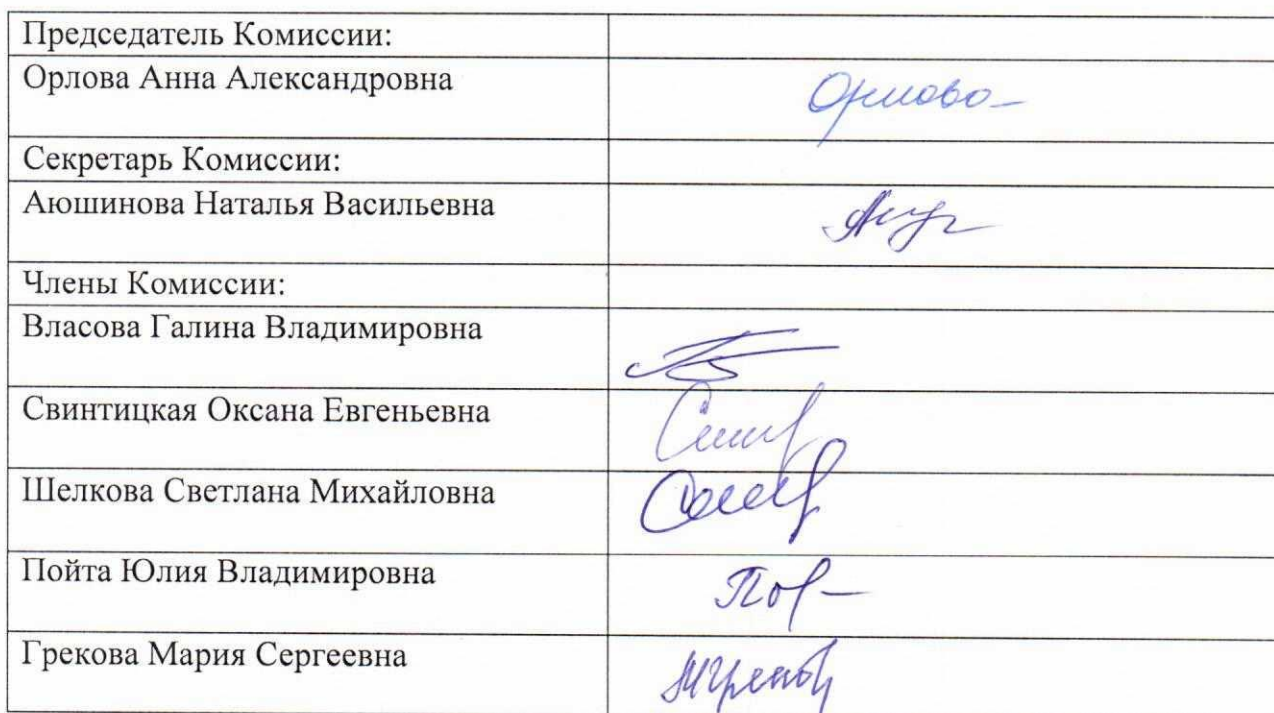 Председатель Комиссии:
Орлова Анна Александровна
Орлова
Секретарь Комиссии:
Аюшинова Наталья Васильевна
Члены Комиссии:
Власова Галина Владимировна
Свинтицкая Оксана Евгеньевна
Шелкова Светлана Михайловна
Пойта Юлия Владимировна
Грекова Мария Сергеевна